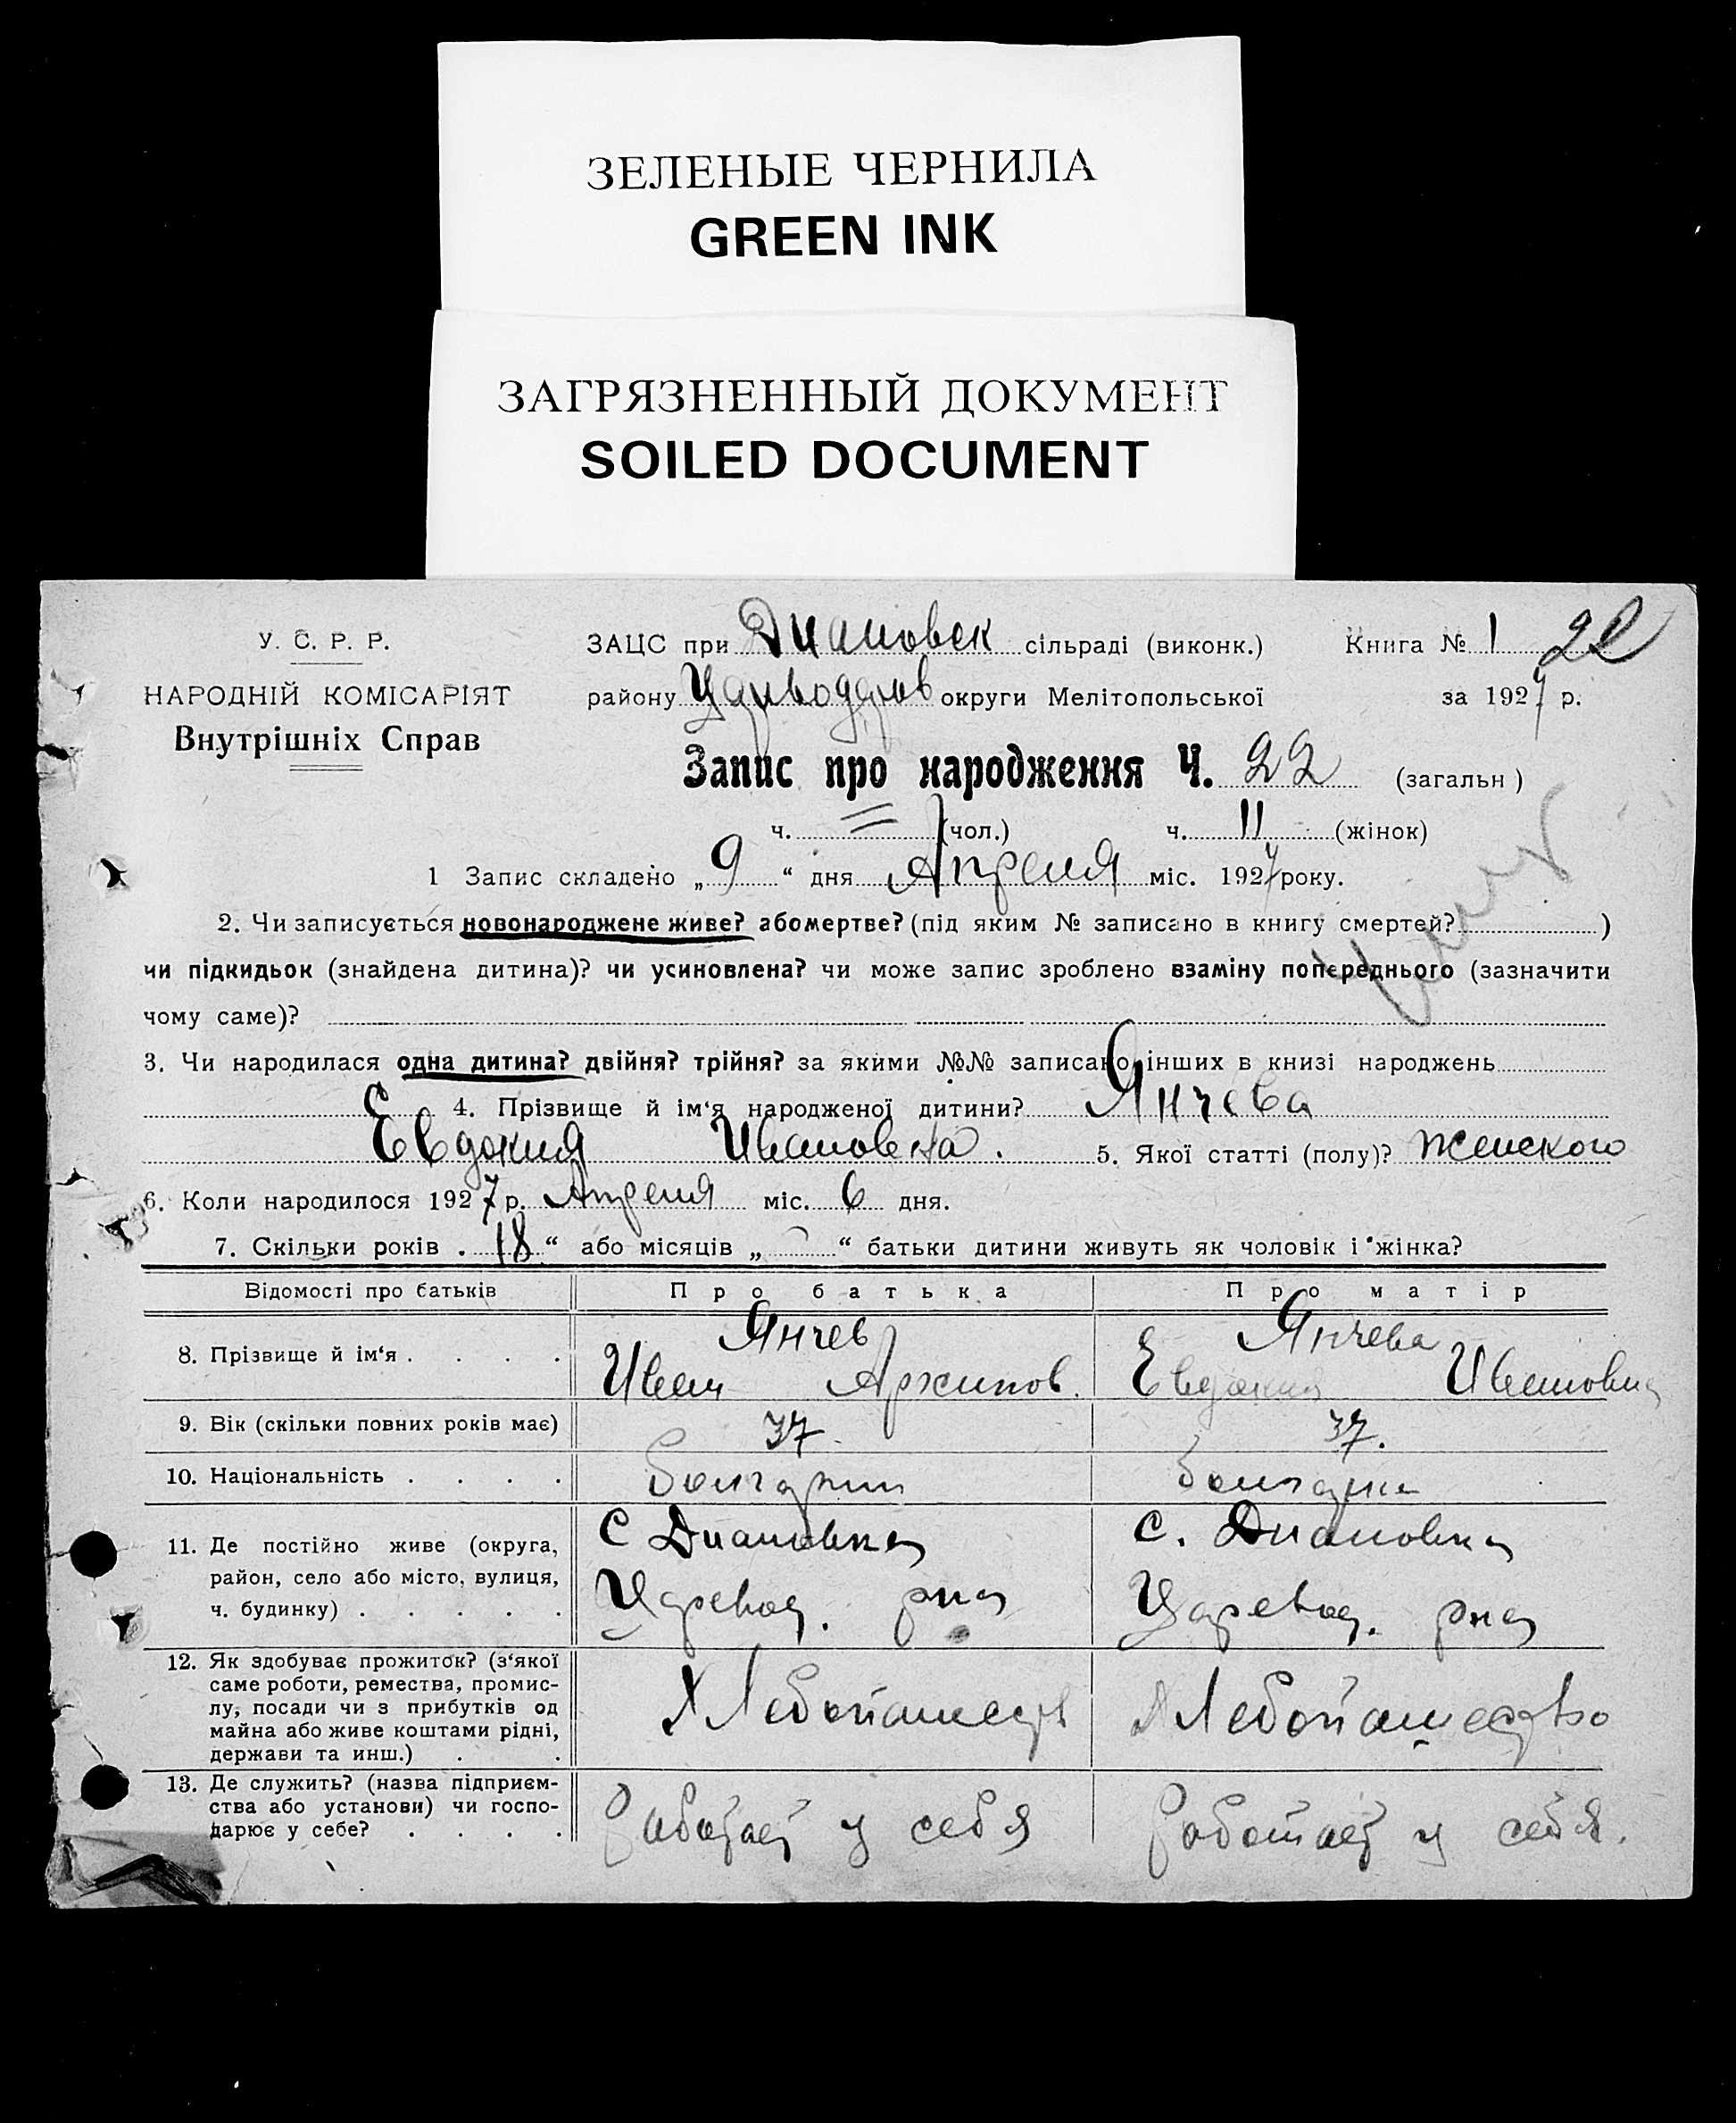 ЗЕЛЕНЫЕ ЧЕРНИЛА
GREEN INK
ЗАГРЯЗНЕННЫЙ ДОКУМЕНТ
SOILED DOCUMENT
У. С. Р. Р.
НАРОДНІЙ КОМІСАРІЯТ
Внутрішніх Справ
ЗАЦС при Диановск сільраді (виконк.) Книга № 1 22
району округи Мелітопольської за 1927 р.
Запис про народження Ч. 22 (загальн)
ч. = (чол.) ч. 11 (жінок)
1 Запис складено „ 9 “ дня Апреля міс. 1927 року.
2. Чи записується новонароджене живе? або мертве? (під яким № записано в книгу смертей? )
чи підкидьок (знайдена дитина)? чи усиновлена? чи може запис зроблено взаміну попереднього (зазначити
чому саме)?
3. Чи народилася одна дитина? двійня? трійня? за якими №№ записано інших в книзі народжень
4. Прізвище й ім‘я народженої дитини? Янчева
Евдокия Ивановна. 5. Якої статті (полу)? Женского
6. Коли народилося 1927 р. Апреля міс. 6 дня.
7. Скільки років . 18 “ або місяців „ “ батьки дитини живуть як чоловік і жінка?
Відомості про батьків Про батька Про матір
8. Прізвище й ім‘я . . . . Янчев Иван Архипов. Янчева Евдокия Ивановна
9. Вік (скільки повних років має) 37. 37.
10. Національність . . . . болгарин болгарин
11. Де постійно живе (округа,
район, село або місто, вулиця,
ч. будинку) . . . . .
С Диановка
Царевод. рна
с. Диановка
Царевод. рна
12. Як здобуває прожиток? (з‘якої
саме роботи, ремества, промис-
лу, посади чи з прибутків од
майна або живе коштами рідні,
держави та инш.) . .
Хлебопашеств
Хлебопашество
13. Де служить? (назва підприєм-
ства або установи) чи госпо-
дарює у себе? . . . .
работает у себя
работает у себя.